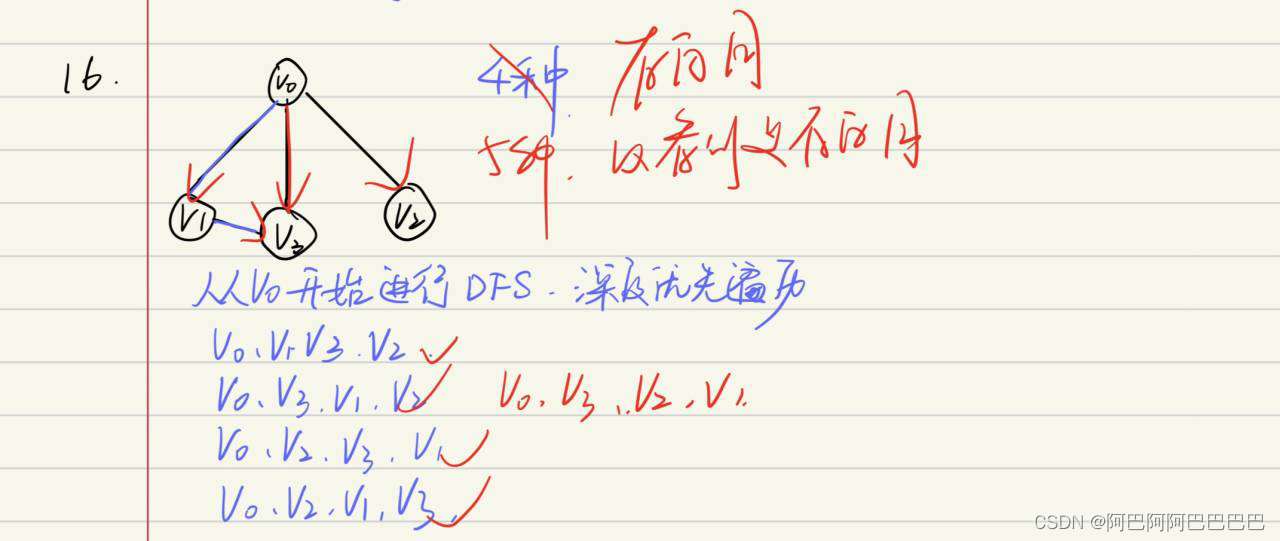 16.
V0
V1
V3
V2
4种
有向图
5种.
这
是有向图
从V0开始进行DFS.深度优先遍历
V0、V1 V3.V2
V0、V3.V1.V2
V0、V3、V2、V1.
V0、V2、V3、V1
V0、V2、V1、V3
CSDN @阿巴阿阿巴巴巴巴